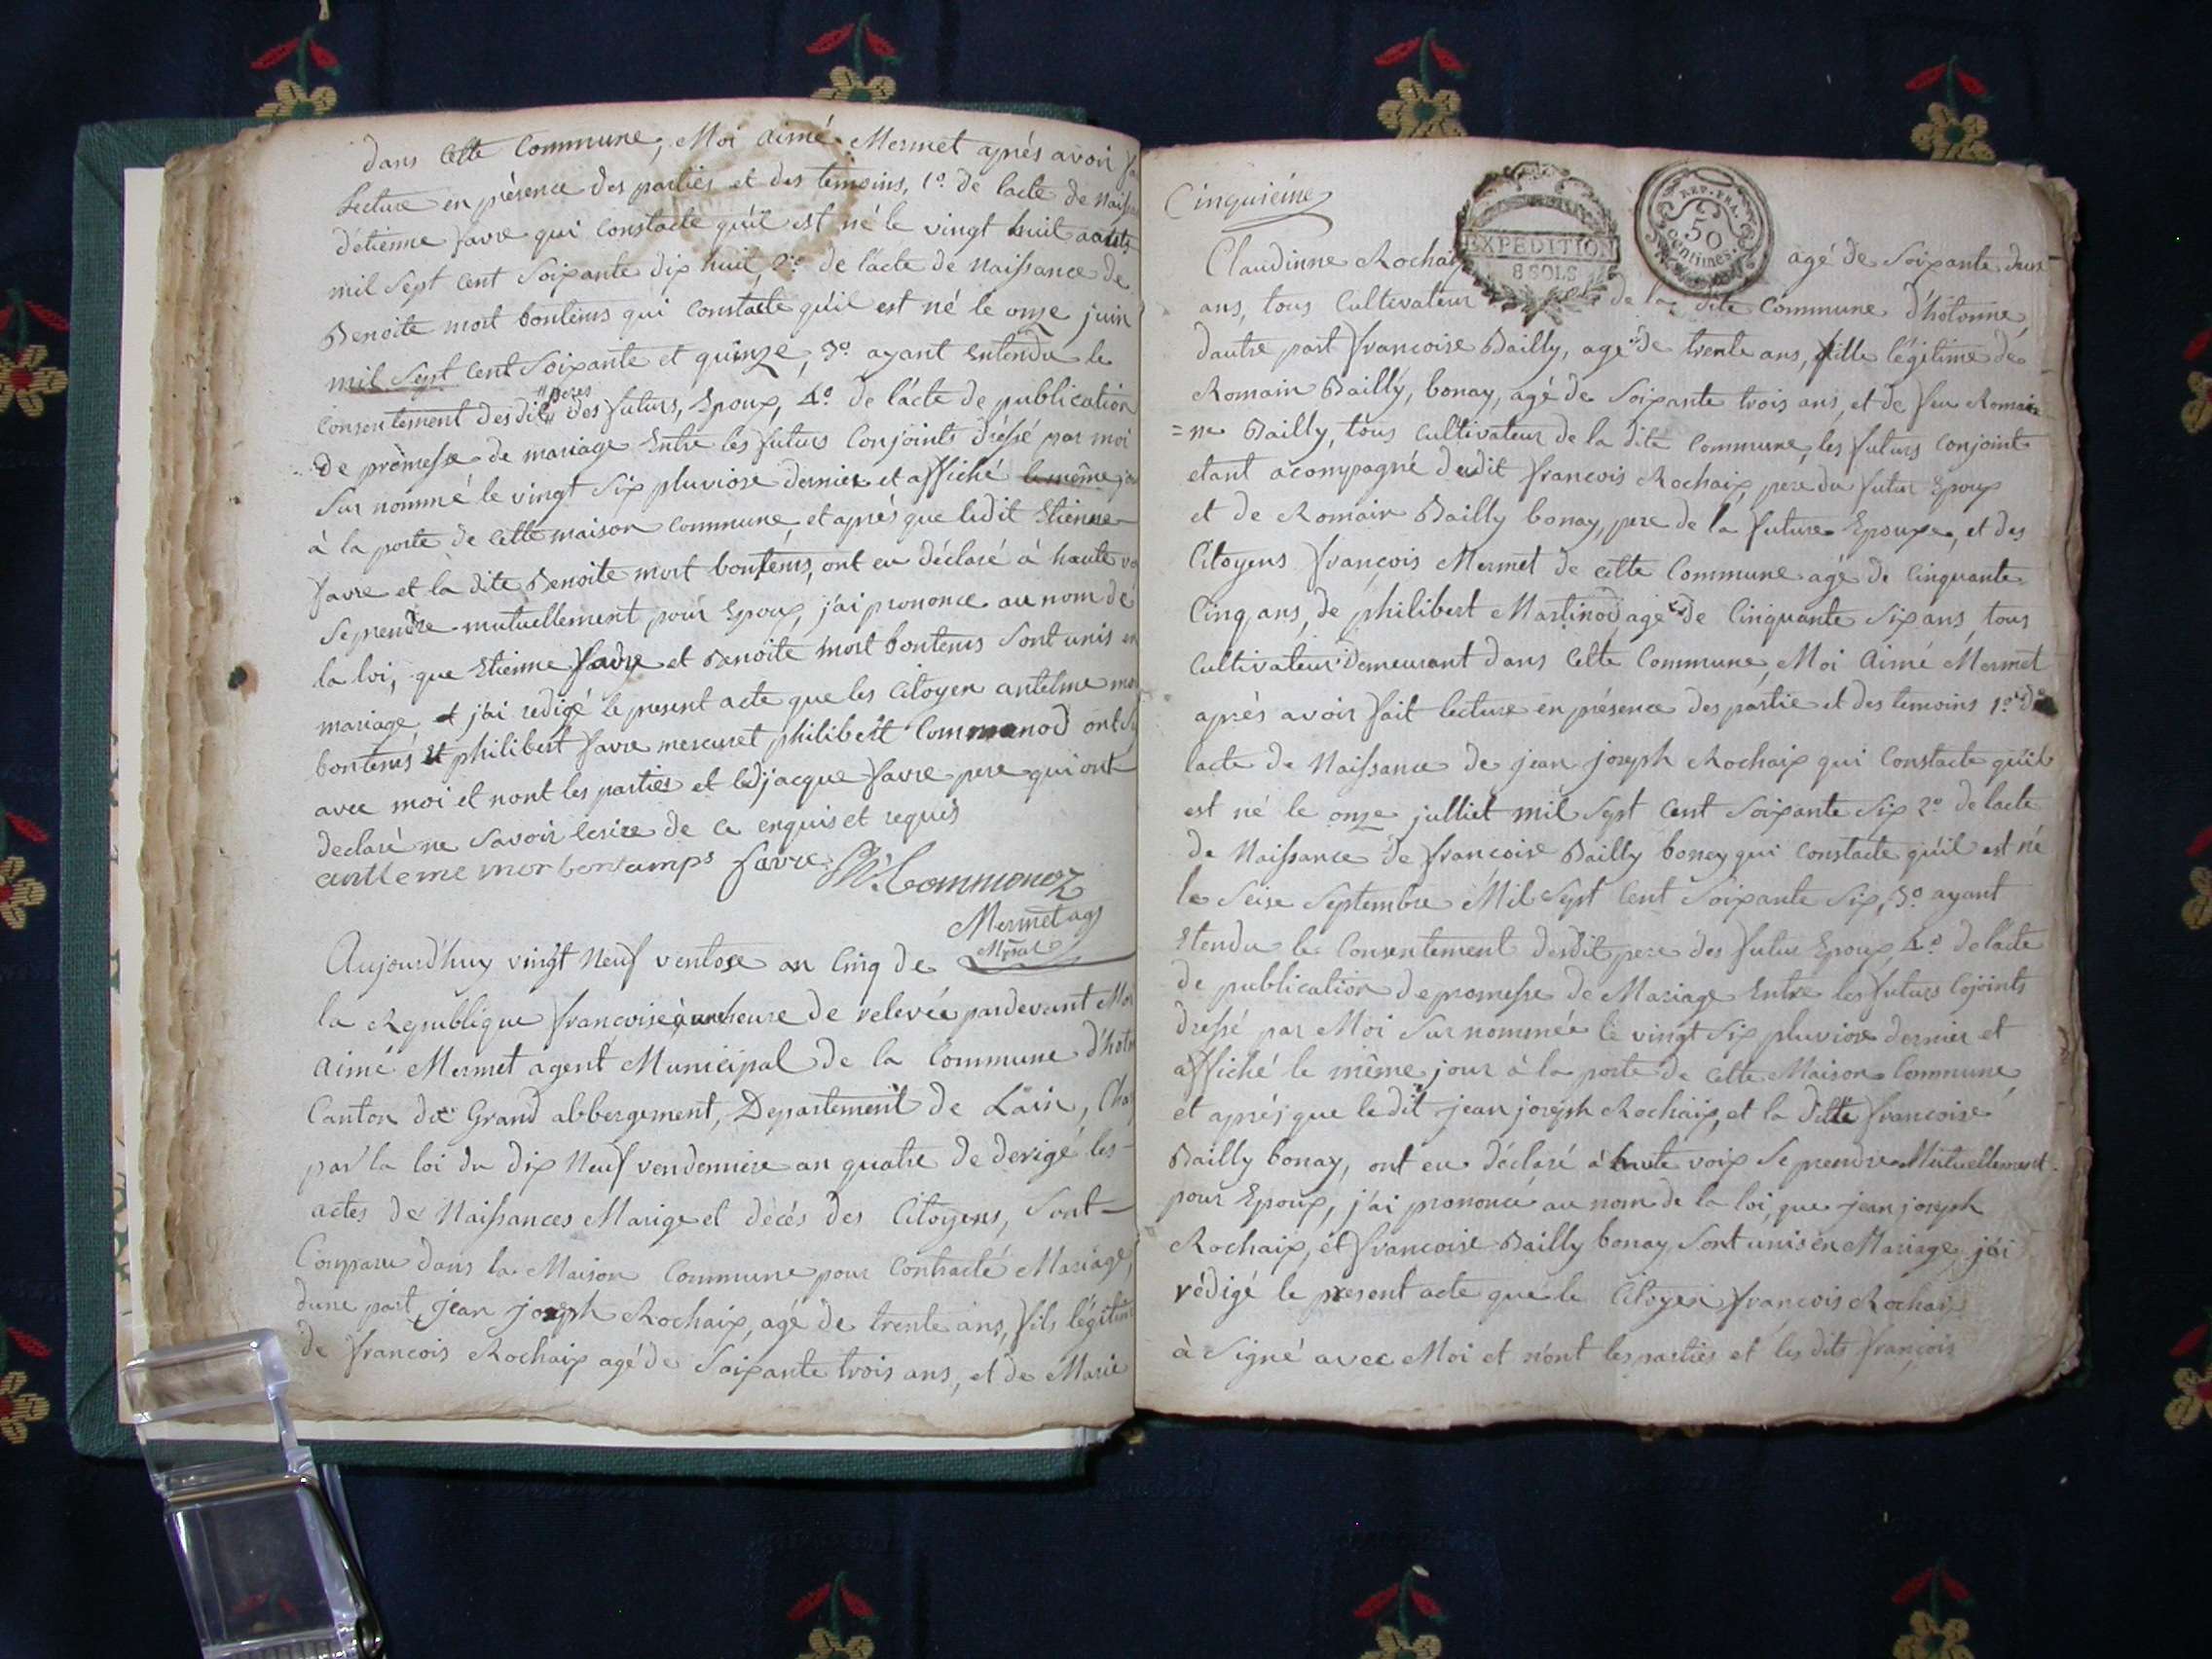 dans Cette Commune, Moi aimé Mermet aprés avoir
Lecture en présence des parties et des temoins, 1º. de lacte de
détienne favre qui Constacte qu'il est né le vingt huit aoust
mil Sept Cent Soixante dix huit, 2º. de lacte de Naissance de
Benoite mort bontems qui Constacte qu'il est né le onze juin
mil Sept Cent Soixante et quinze, 3º. ayant Entendu le
peres
Consentement desdits des futurs, Epoux, 4º. de lácte de publication
de promesse de mariage Entre les futurs Conjoints dréssé par moi
Sur nommé le vingt Six pluviose dernier et affiché le même
à la porte de Cette maison Commune, et aprés que ledit Etienne
favre et la dite Benoite mort bontems, ont eu déclaré à haute
Se prendre mutuellement pour Epoux, j'ai prononce au nom de
la loi, que Etienne favre et Benoite mort bontems Sont unis en
mariage, et j'ai redigé le present acte que les Citoyen antelme
bontems et philibert favre mercuret, philibert Commonod ont
avec moi et nont les parties et led. jacque favre pere qui ont
declaré ne Savoir lecrire de Ce enquis et requis
antleme mor bontamps favre Ph. Commonoz
Mermet ag
Mpal
Aujourd'huy vingt Neuf ventose an Cinq de
la Republique francoise à une heure de relevée pardevant Moi
aimé Mermet agent Municipal de la Commune
Canton du Grand abbergement, Departement de Lain,
par la loi du dix Neuf vendemiere an quatre de derigé les
actes de Naissances Marige et décés des Citoyens, Sont
Comparu dans la Maison Commune pour Contracté Mariage,
dune part, jean joseph Rochaix, agé de trente ans, fils légitime
de francois Rochaix agé de Soixante trois ans, et de Marie
Cinquieme
EXPEDITION
8 SOLS
REP. FRA.
50
centimes
Claudinne Rochaix agé de Soixante deux
ans, tous Cultivateur de la dite Commune d'hotonne,
dautre part francoise Bailly, agé de trente ans, fille légitime de
Romain Bailly, bonay, agé de Soixante trois ans, et de feu Romain
=ne Bailly, tous Cultivateur de la dite Commune, les futurs Conjoint
etant acompagné dudit francois Rochaix, pere du futur Epoux
et de Romain Bailly bonay, pere de la future Epouxe, et des
Citoyens françois Mermet de Cette Commune agé de Cinquante
Cinq ans, de philibert Martinod agé de Cinquante Six ans, tous
Cultivateur demeurant dans Cette Commune, Moi Aimé Mermet
aprés avoir fait lecture en présence des partie et des temoins 1º. de
lacte de Naissance de jean joseph Rochaix qui Constacte qu'il
est né le onze julliet mil Sept Cent Soixante Six 2º. de lacte
de Naissance de francoise Bailly bonay qui Constacte qu'il est né
le Seise Septembre Mil Sept Cent Soixante Six, 3º ayant
Etendu le Consentement desdit pere des futur Epoux, 4º. de lacte
de publication de promesse de Mariage Entre les futurs Cojoints
dressé par Moi Sur nommée le vingt Six pluviose dernier et
affiché le même jour à la porte de Cette Maison Commune,
et aprés que ledit jean joseph Rochaix, et la dite francoise
Bailly bonay, ont eu déclaré à haute voix Se prendre Mutuellement
pour Epoux, j'ai prononcé au nom de la loi, que jean joseph
Rochaix, et francoise Bailly bonay Sont unis en Mariage, j'ai
rédigé le present acte que le Citoyen francois Rochaix
à Signé avec Moi et n'ont les parties et les dits françois